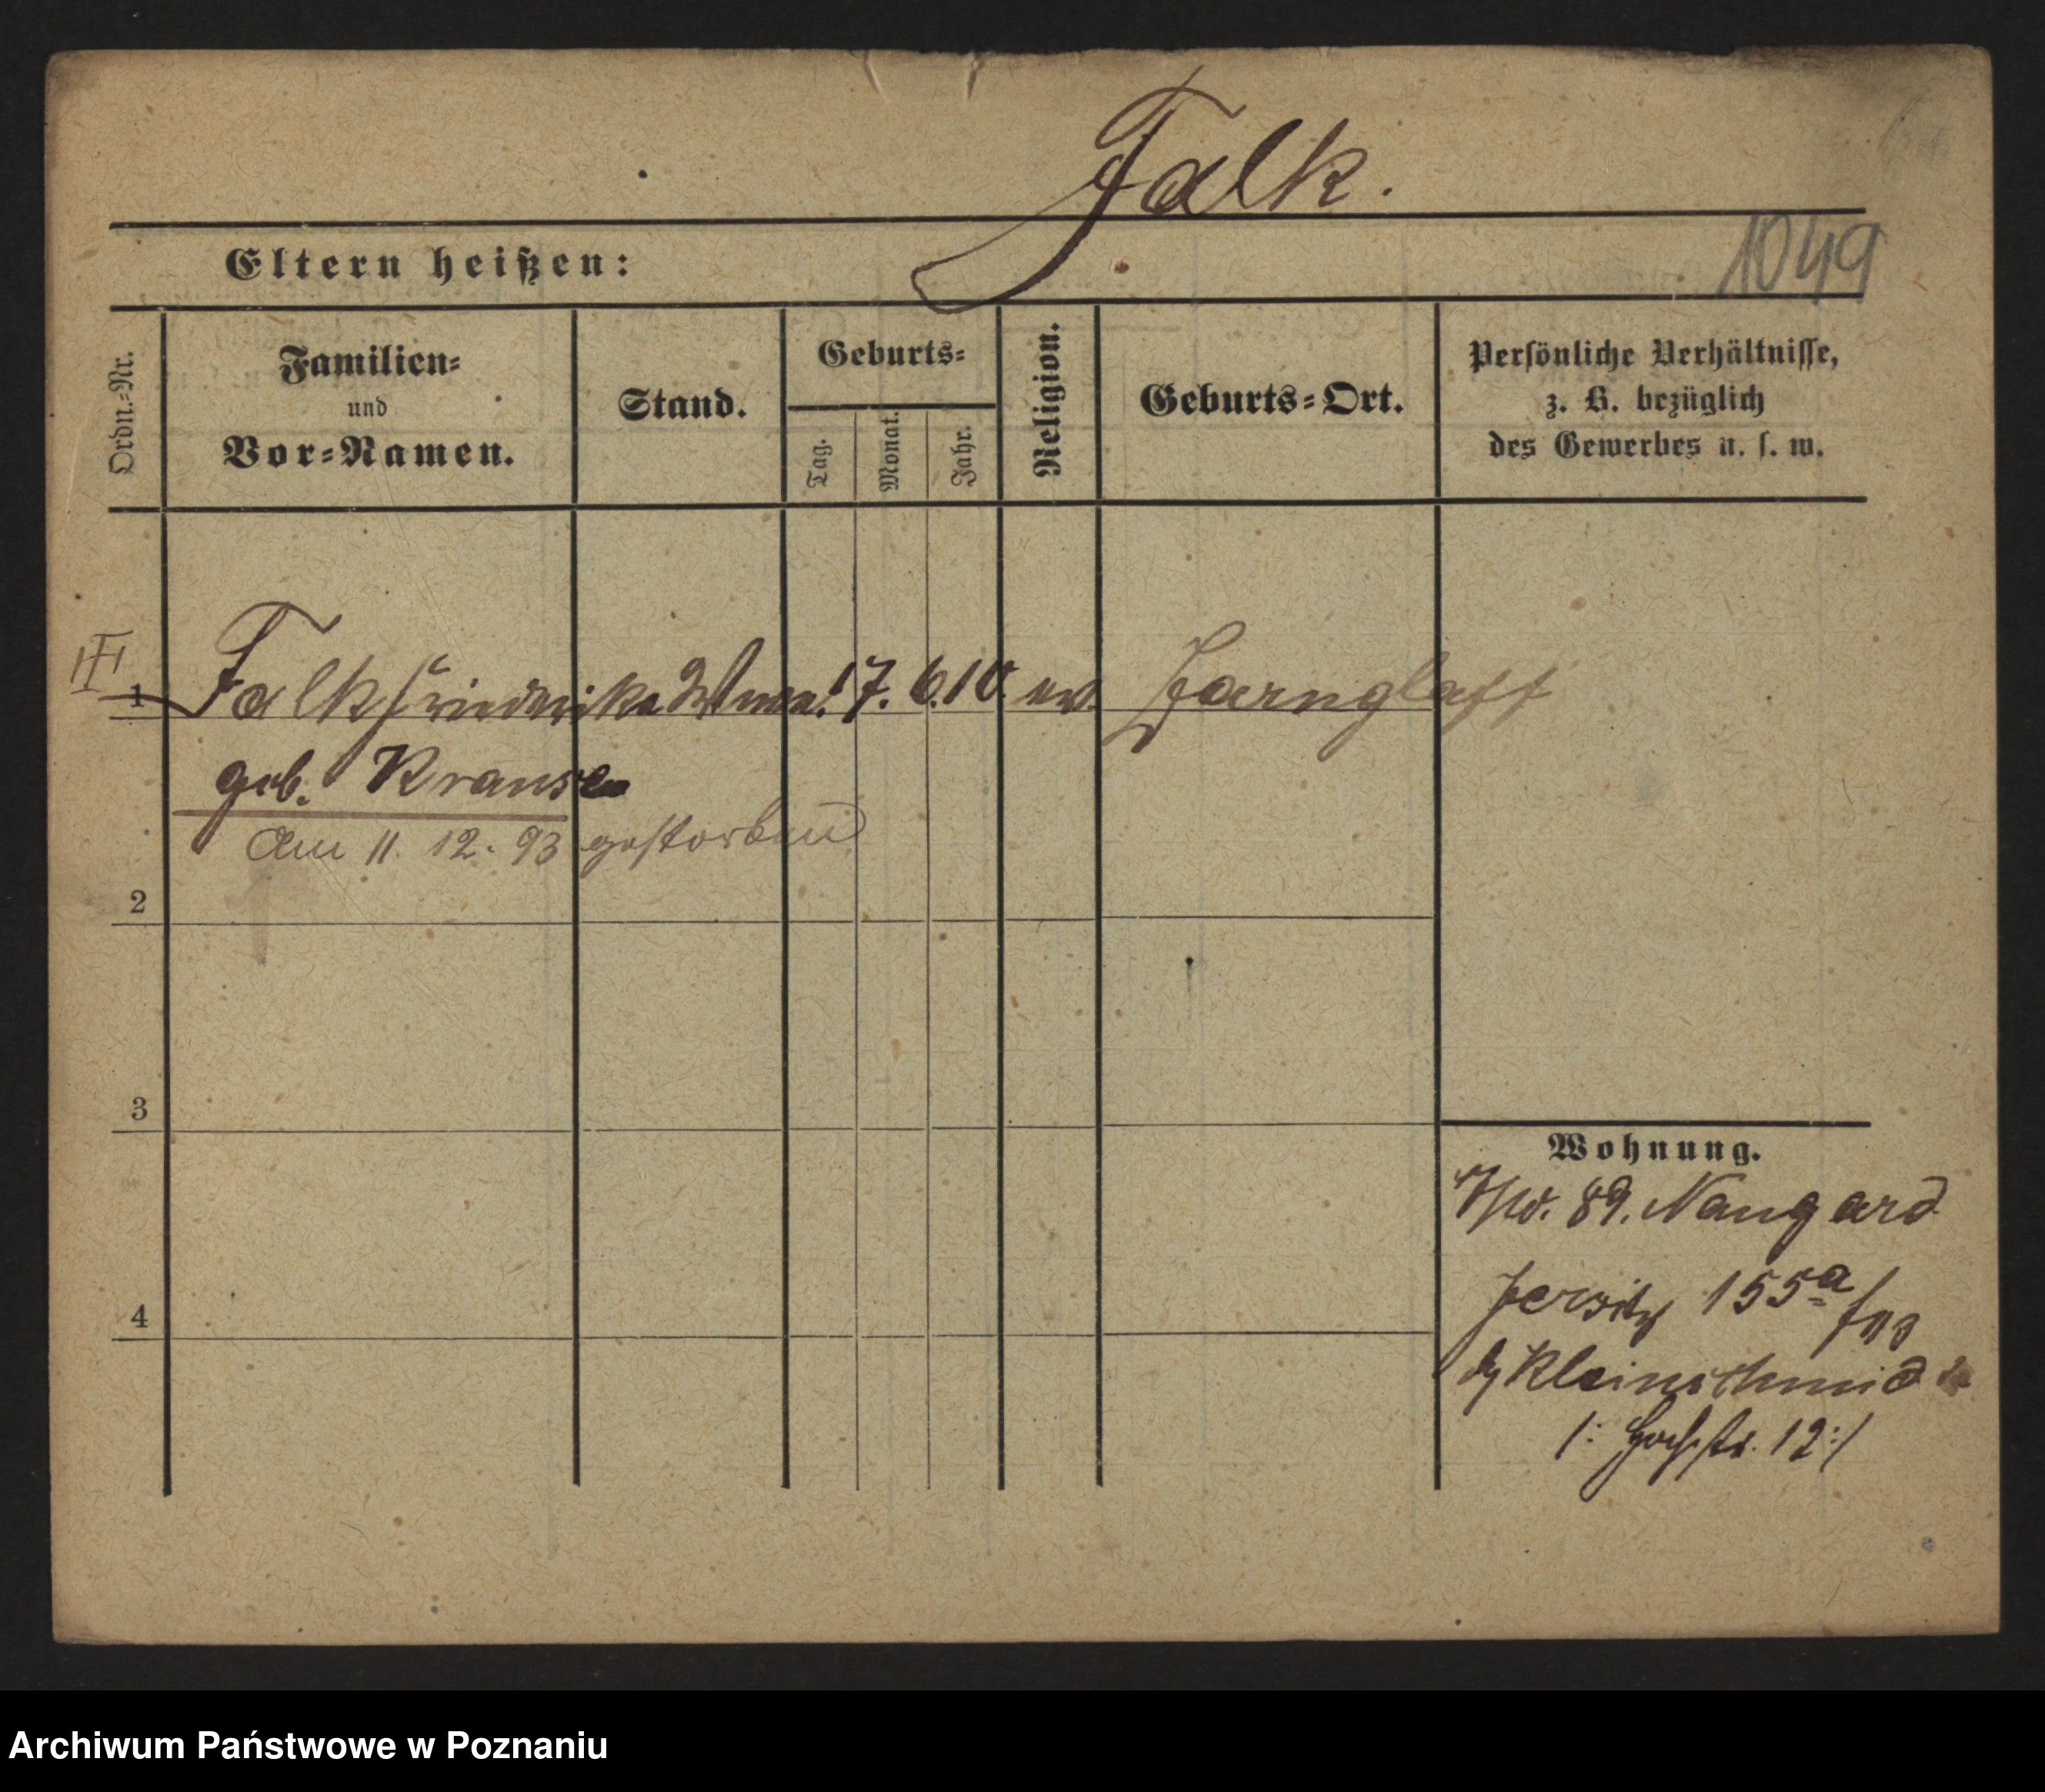 Falk.
1049
Eltern heißen:
Ordn.-Nr.
Familien-
und
Vor-Namen.
Stand.
Geburts-
Tag.
Monat.
Jahr.
Religion.
Geburts-Ort.
Persönliche Verhältnisse,
z. B. bezüglich
des Gewerbes u. s. w.
1 Falk Friederike Wwe. 17. 6. 10. ev. Zarnglaff
geb. Krause
Am 11. 12. 93 gestorben
2
3
4
Wohnung.
89. Naugard
Jersitz 155a
Kleinschmidt
/: Hochstr. 12 :/
Archiwum Państwowe w Poznaniu